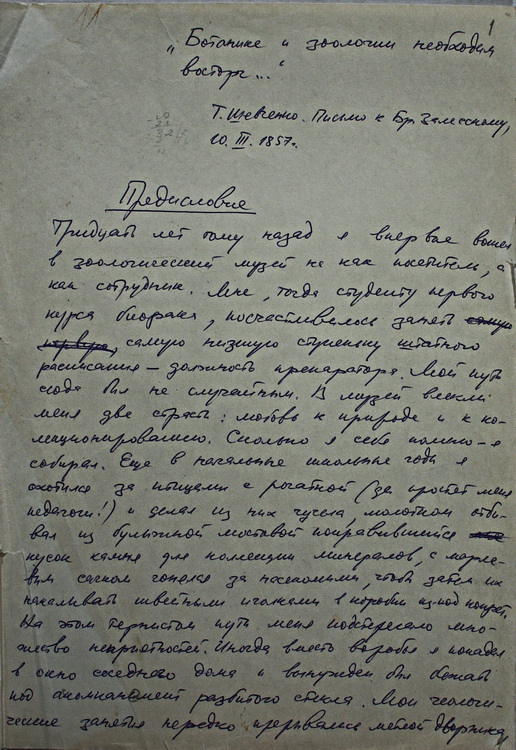 1
11
„Ботанике и зоологии необходим
восторг..."
Т. Шевченко. Письмо к Бр. Залесскому,
10. III. 1857г.
Предисловие
Тридцать лет тому назад я впервые вошел
в зоологический музей не как посетитель, а
как сотрудник. Мне, тогда студенту первого
курса биофака, посчастливилось занять самую
первую, самую низшую ступеньку штатного
расписания – должность препаратора. Мой путь
сюда был не случайным. В музей влекли
меня две страсти: любовь к природе и к кол-
лекционированию. Сколько я себя помню – я
собирал. Еще в начальные школьные годы я
охотился за птицами с рогаткой (да простят меня
педагоги!) и делал из них чучела, молотком отби-
вал из булыжной мостовой понравившийся
кусок камня для коллекции минералов, с марле-
вым сачком гонялся за насекомыми, чтобы затем их
накалывать швейными иголками в коробки из-под конфет.
На этом тернистом пути меня подстерегало мно-
жество неприятностей. Иногда вместо воробья я попадал
в окно соседнего дома и вынужден был бежать
под аккомпанемент разбитого стекла. Мои геологи-
ческие занятия нередко прерывались метлой дворника